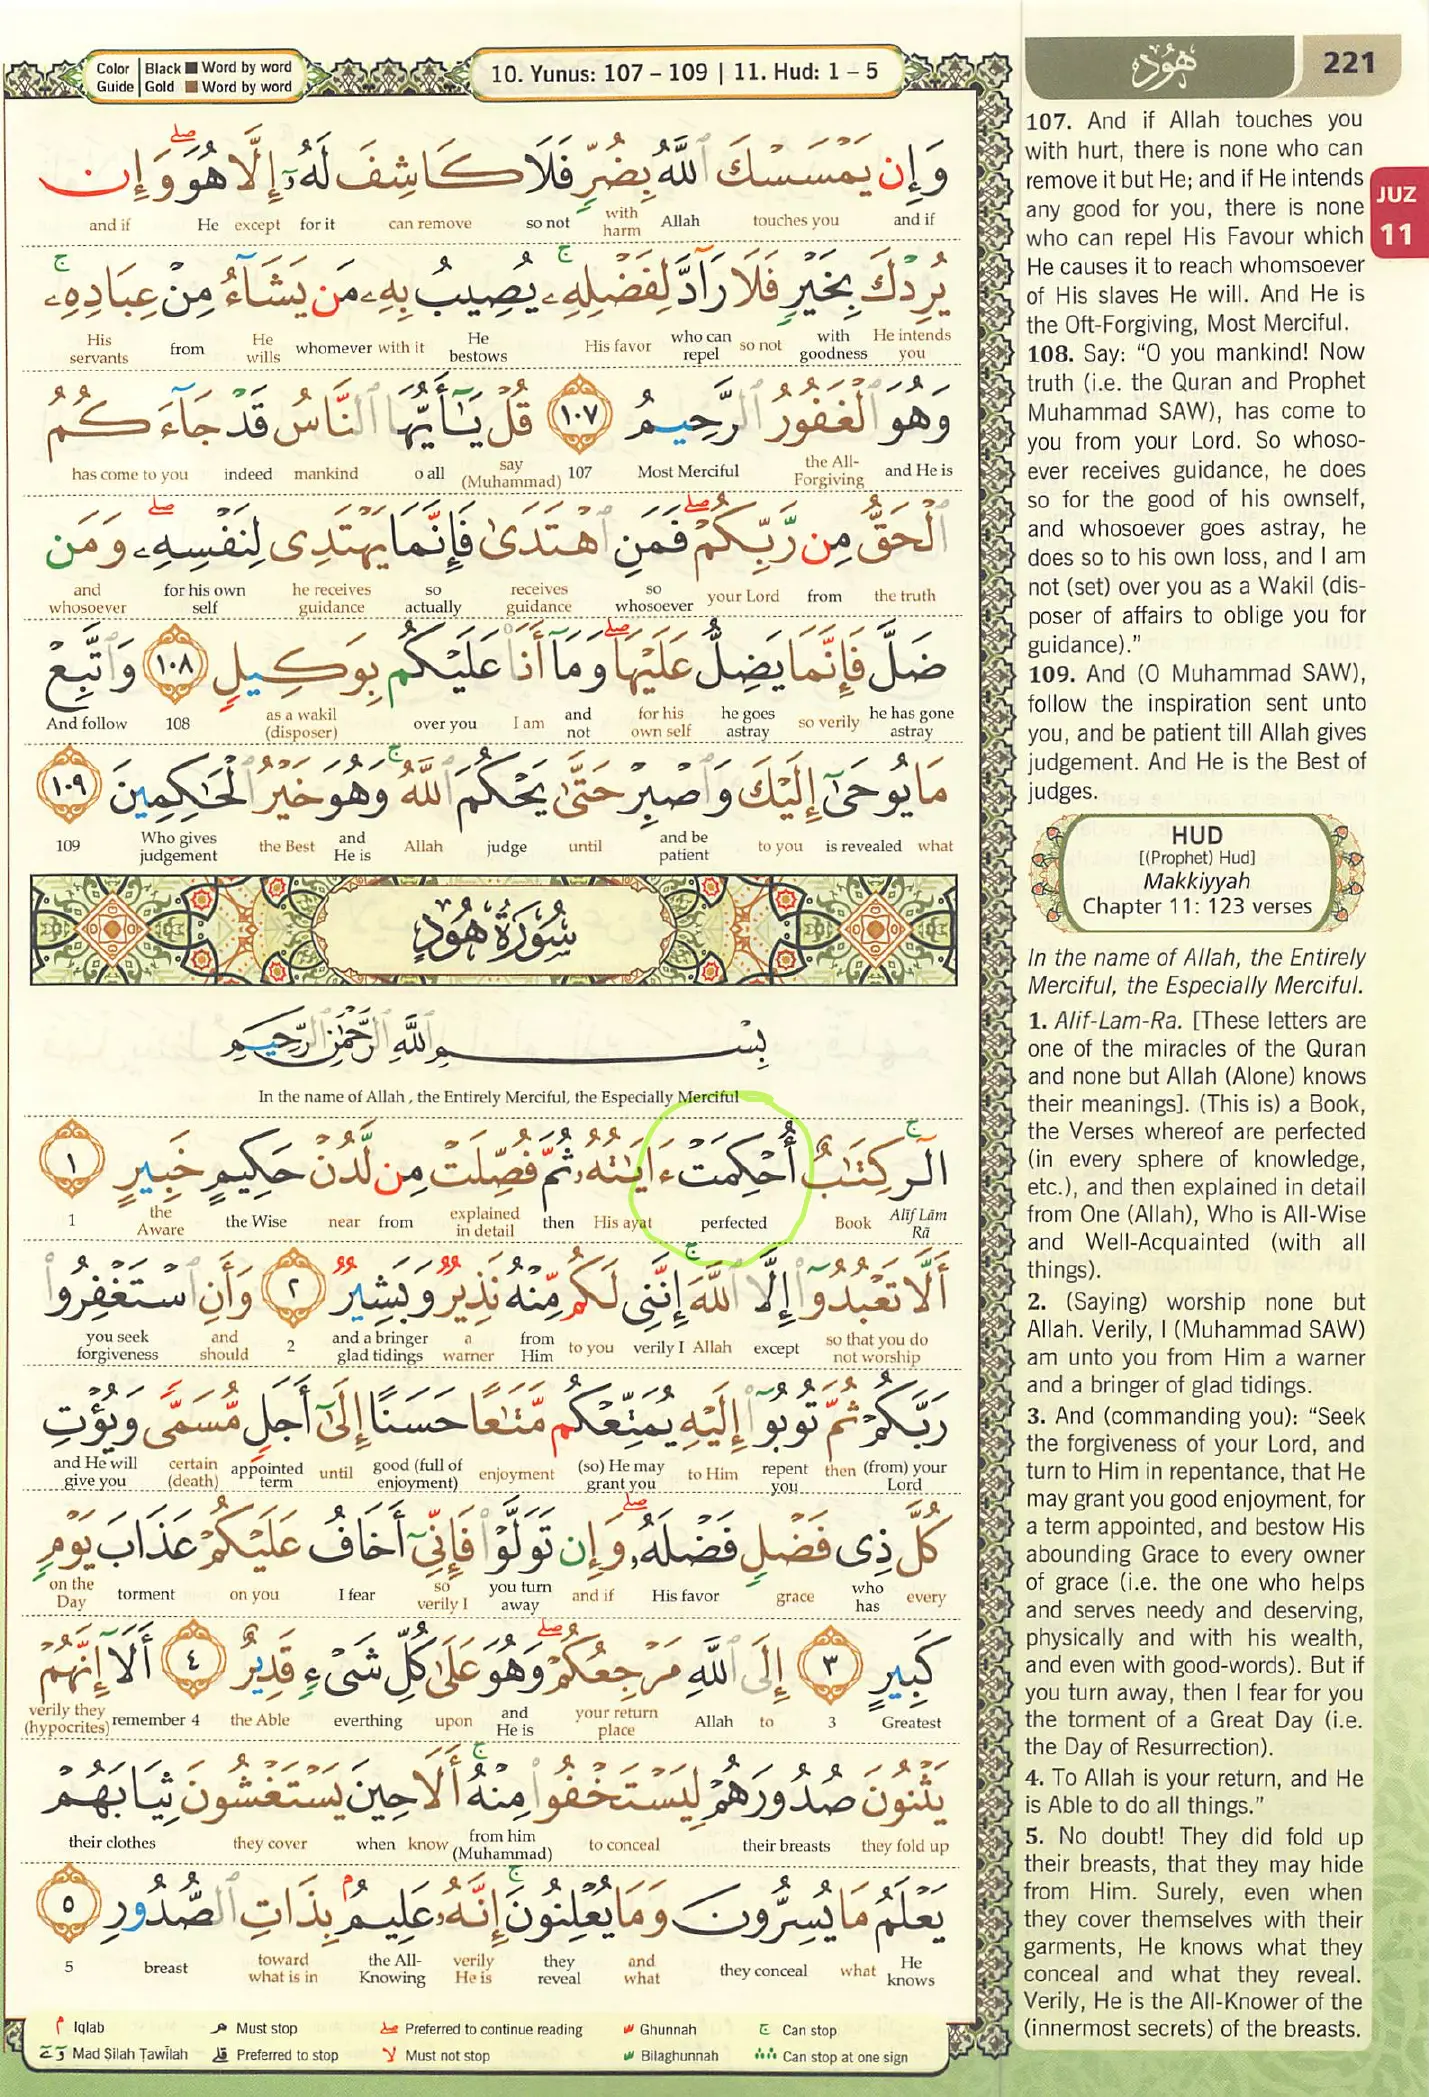 Color Guide | Black ■ Word by word
Gold ■ Word by word
10. Yunus: 107 – 109 | 11. Hud: 1 – 5
هُود
221
JUZ
11
وَإِن يَمْسَسْكَ ٱللَّهُ بِضُرٍّ فَلَا كَاشِفَ لَهُۥٓ إِلَّا هُوَ ۖ وَإِن
and if touches you Allah with harm so not can remove for it except He and if
يُرِدْكَ بِخَيْرٍ فَلَا رَآدَّ لِفَضْلِهِۦ ۚ يُصِيبُ بِهِۦ مَن يَشَآءُ مِنْ عِبَادِهِۦ ۚ
He intends you with goodness so not who can repel His favor He bestows with it whomever He wills from His servants
وَهُوَ ٱلْغَفُورُ ٱلرَّحِيمُ ١٠٧ قُلْ يَـٰٓأَيُّهَا ٱلنَّاسُ قَدْ جَآءَكُمُ
and He is the All-Forgiving Most Merciful 107 say (Muhammad) o all mankind indeed has come to you
ٱلْحَقُّ مِن رَّبِّكُمْ ۖ فَمَنِ ٱهْتَدَىٰ فَإِنَّمَا يَهْتَدِى لِنَفْسِهِۦ ۖ وَمَن
the truth from your Lord so whosoever receives guidance so actually he receives guidance for his own self and whosoever
ضَلَّ فَإِنَّمَا يَضِلُّ عَلَيْهَا ۖ وَمَآ أَنَا۠ عَلَيْكُم بِوَكِيلٍ ١٠٨ وَٱتَّبِعْ
he has gone astray so verily he goes astray for his own self and not I am over you as a wakil (disposer) 108 And follow
مَا يُوحَىٰٓ إِلَيْكَ وَٱصْبِرْ حَتَّىٰ يَحْكُمَ ٱللَّهُ ۚ وَهُوَ خَيْرُ ٱلْحَـٰكِمِينَ ١٠٩
what is revealed to you and be patient until judge Allah and He is the Best Who gives judgement 109
سُورَةُ هُودٍ
بِسْمِ ٱللَّهِ ٱلرَّحْمَـٰنِ ٱلرَّحِيمِ
In the name of Allah , the Entirely Merciful, the Especially Merciful
الٓر ۚ كِتَـٰبٌ أُحْكِمَتْ ءَايَـٰتُهُۥ ثُمَّ فُصِّلَتْ مِن لَّدُنْ حَكِيمٍ خَبِيرٍ ١
Alīf Lām Rā Book perfected His ayat then explained in detail from near the Wise the Aware 1
أَلَّا تَعْبُدُوٓا۟ إِلَّا ٱللَّهَ ۚ إِنَّنِى لَكُم مِّنْهُ نَذِيرٌ وَبَشِيرٌ ٢ وَأَنِ ٱسْتَغْفِرُوا۟
so that you do not worship except Allah verily I to you from Him a warner and a bringer glad tidings 2 and should you seek forgiveness
رَبَّكُمْ ثُمَّ تُوبُوٓا۟ إِلَيْهِ يُمَتِّعْكُم مَّتَـٰعًا حَسَنًا إِلَىٰٓ أَجَلٍ مُّسَمًّى وَيُؤْتِ
(from) your Lord then repent you to Him (so) He may grant you enjoyment good (full of enjoyment) until appointed term certain (death) and He will give you
كُلَّ ذِى فَضْلٍ فَضْلَهُۥ ۖ وَإِن تَوَلَّوْا۟ فَإِنِّىٓ أَخَافُ عَلَيْكُمْ عَذَابَ يَوْمٍ
every who has grace His favor and if you turn away so verily I I fear on you torment on the Day
كَبِيرٍ ٣ إِلَى ٱللَّهِ مَرْجِعُكُمْ ۖ وَهُوَ عَلَىٰ كُلِّ شَىْءٍ قَدِيرٌ ٤ أَلَآ إِنَّهُمْ
Greatest 3 to Allah your return place and He is upon everthing the Able 4 remember verily they (hypocrites)
يَثْنُونَ صُدُورَهُمْ لِيَسْتَخْفُوا۟ مِنْهُ ۚ أَلَا حِينَ يَسْتَغْشُونَ ثِيَابَهُمْ
they fold up their breasts to conceal from him (Muhammad) know when they cover their clothes
يَعْلَمُ مَا يُسِرُّونَ وَمَا يُعْلِنُونَ ۚ إِنَّهُۥ عَلِيمٌۢ بِذَاتِ ٱلصُّدُورِ ٥
He knows what they conceal and what they reveal verily He is the All-Knowing toward what is in breast 5
Iqlab Must stop Preferred to continue reading Ghunnah Can stop
Mad Ṣilah Ṭawīlah Preferred to stop Must not stop Bilaghunnah Can stop at one sign
107. And if Allah touches you
with hurt, there is none who can
remove it but He; and if He intends
any good for you, there is none
who can repel His Favour which
He causes it to reach whomsoever
of His slaves He will. And He is
the Oft-Forgiving, Most Merciful.
108. Say: “O you mankind! Now
truth (i.e. the Quran and Prophet
Muhammad SAW), has come to
you from your Lord. So whoso-
ever receives guidance, he does
so for the good of his ownself,
and whosoever goes astray, he
does so to his own loss, and I am
not (set) over you as a Wakil (dis-
poser of affairs to oblige you for
guidance).”
109. And (O Muhammad SAW),
follow the inspiration sent unto
you, and be patient till Allah gives
judgement. And He is the Best of
judges.
HUD
[(Prophet) Hud]
Makkiyyah
Chapter 11: 123 verses
In the name of Allah, the Entirely
Merciful, the Especially Merciful.
1. Alif-Lam-Ra. [These letters are
one of the miracles of the Quran
and none but Allah (Alone) knows
their meanings]. (This is) a Book,
the Verses whereof are perfected
(in every sphere of knowledge,
etc.), and then explained in detail
from One (Allah), Who is All-Wise
and Well-Acquainted (with all
things).
2. (Saying) worship none but
Allah. Verily, I (Muhammad SAW)
am unto you from Him a warner
and a bringer of glad tidings.
3. And (commanding you): “Seek
the forgiveness of your Lord, and
turn to Him in repentance, that He
may grant you good enjoyment, for
a term appointed, and bestow His
abounding Grace to every owner
of grace (i.e. the one who helps
and serves needy and deserving,
physically and with his wealth,
and even with good-words). But if
you turn away, then I fear for you
the torment of a Great Day (i.e.
the Day of Resurrection).
4. To Allah is your return, and He
is Able to do all things.”
5. No doubt! They did fold up
their breasts, that they may hide
from Him. Surely, even when
they cover themselves with their
garments, He knows what they
conceal and what they reveal.
Verily, He is the All-Knower of the
(innermost secrets) of the breasts.